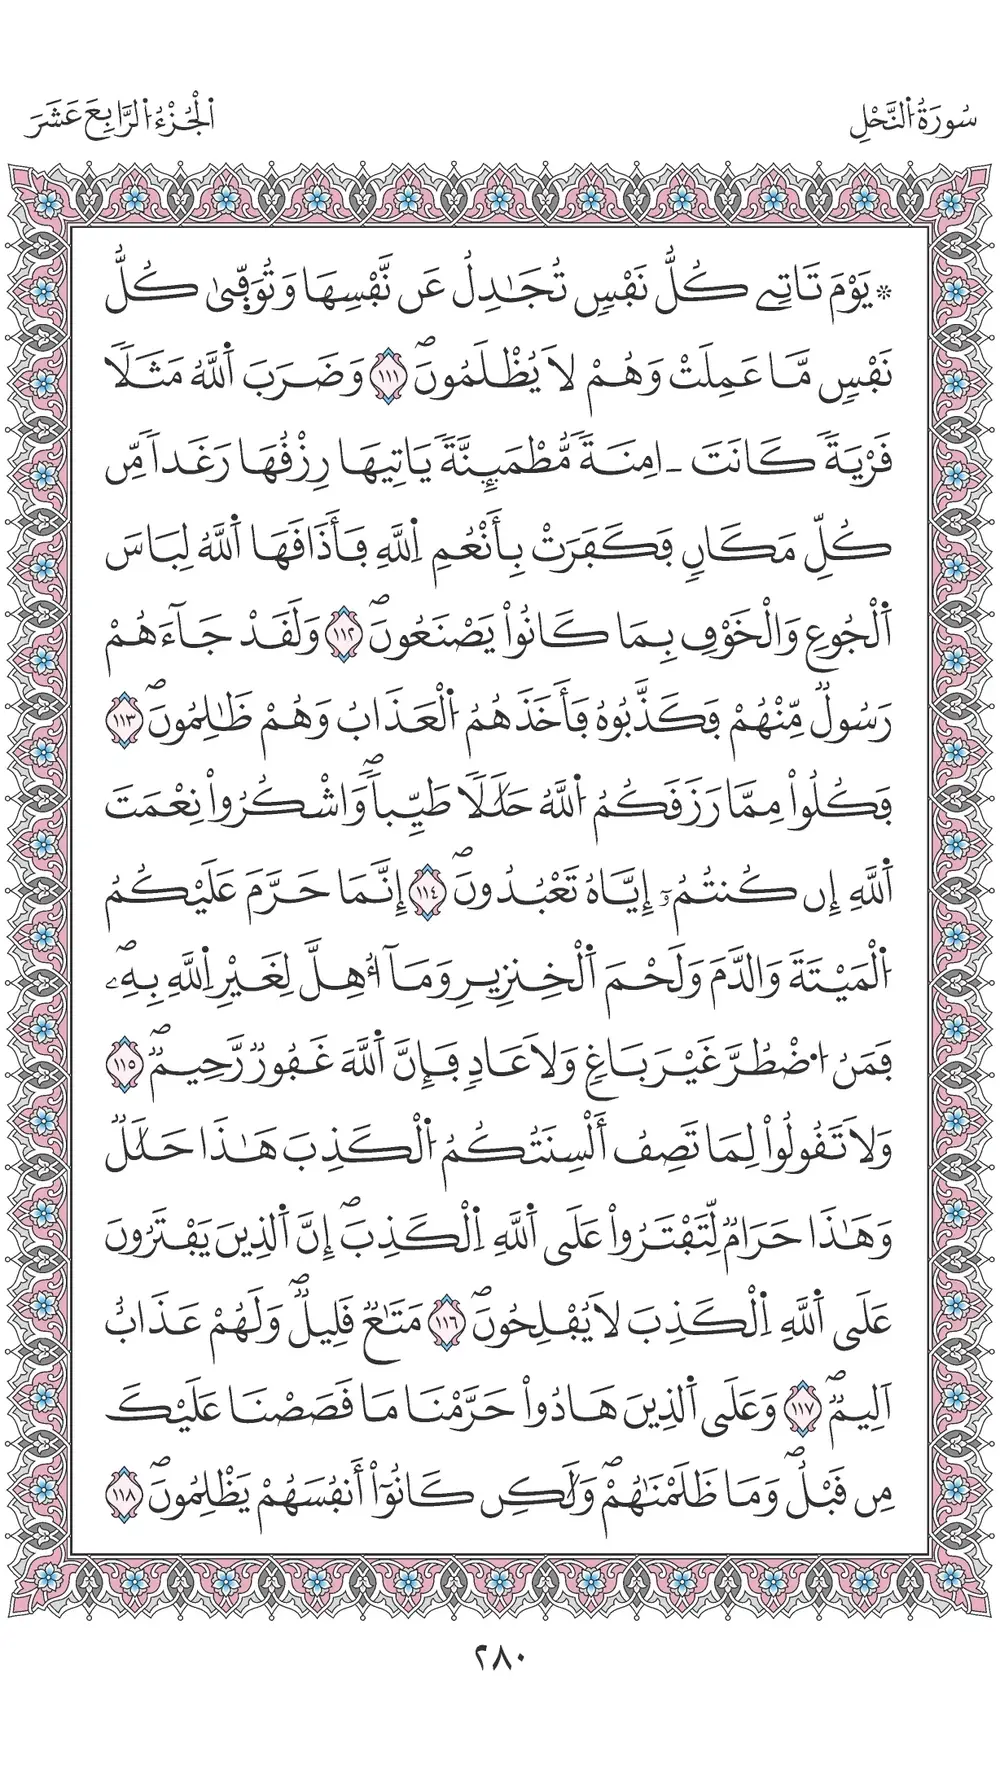 سُورَةُ النَّحْلِ
اَلْجُزْءُ اَلرَّابِعَ عَشَرَ
۞ يَوْمَ تَاتِے كُلُّ نَفْسٖ تُجَٰدِلُ عَن نَّفْسِهَا وَتُوَفّ۪ىٰ كُلُّ
نَفْسٖ مَّا عَمِلَتْ وَهُمْ لَا يُظْلَمُونَۖ ١١١ وَضَرَبَ اَ۬للَّهُ مَثَلاٗ
قَرْيَةٗ كَانَتَ ـ امِنَةٗ مُّطْمَئِنَّةٗ يَاتِيهَا رِزْقُهَا رَغَداٗ مِّن
كُلِّ مَكَانٖ فَكَفَرَتْ بِأَنْعُمِ اِ۬للَّهِ فَأَذَٰقَهَا اَ۬للَّهُ لِبَاسَ
اَ۬لْجُوعِ وَالْخَوْفِ بِمَا كَانُواْ يَصْنَعُونَۖ ١١٢ وَلَقَدْ جَآءَهُمْ
رَسُولٞ مِّنْهُمْ فَكَذَّبُوهُ فَأَخَذَهُمُ اُ۬لْعَذَابُ وَهُمْ ظَٰلِمُونَۖ ١١٣
فَكُلُواْ مِمَّا رَزَقَكُمُ اُ۬للَّهُ حَلَٰلاٗ طَيِّباٗۖ وَاشْكُرُواْ نِعْمَتَ
اَ۬للَّهِ إِن كُنتُمُۥٓ إِيَّاهُ تَعْبُدُونَۖ ١١٤ إِنَّمَا حَرَّمَ عَلَيْكُمُ
اُ۬لْمَيْتَةَ وَالدَّمَ وَلَحْمَ اَ۬لْخِنزِيرِ وَمَآ أُهِلَّ لِغَيْرِ اِ۬للَّهِ بِهِۦۖ
فَمَنُ اُ۟ضْطُرَّ غَيْرَ بَاغٖ وَلَا عَادٖ فَإِنَّ اَ۬للَّهَ غَفُورٞ رَّحِيمٞۖ ١١٥
وَلَا تَقُولُواْ لِمَا تَصِفُ أَلْسِنَتُكُمُ اُ۬لْكَذِبَ هَٰذَا حَلَٰلٞ
وَهَٰذَا حَرَامٞ لِّتَفْتَرُواْ عَلَى اَ۬للَّهِ اِ۬لْكَذِبَۖ إِنَّ اَ۬لذِينَ يَفْتَرُونَ
عَلَى اَ۬للَّهِ اِ۬لْكَذِبَ لَا يُفْلِحُونَۖ ١١٦ مَتَٰعٞ قَلِيلٞۖ وَلَهُمْ عَذَابٌ
اَلِيمٞۖ ١١٧ وَعَلَى اَ۬لذِينَ هَادُواْ حَرَّمْنَا مَا قَصَصْنَا عَلَيْكَ
مِن قَبْلُۖ وَمَا ظَلَمْنَٰهُمْۖ وَلَٰكِن كَانُوٓاْ أَنفُسَهُمْ يَظْلِمُونَۖ ١١٨
٢٨٠